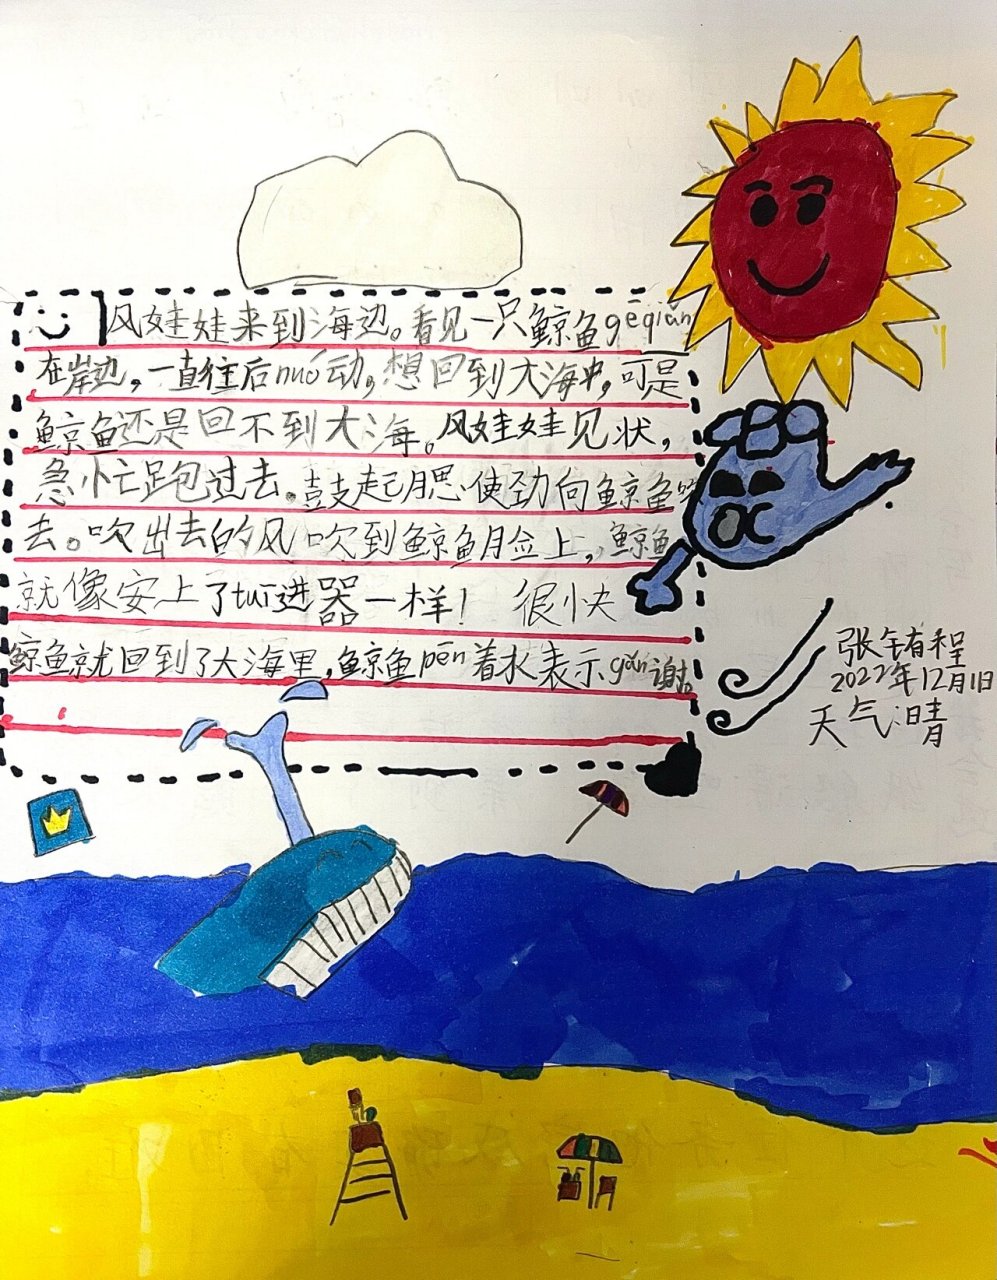 风娃娃来到海边。看见一只鲸鱼gēqiǎn
在岸边，一直往后nuó动，想回到大海中，可是
鲸鱼还是回不到大海。风娃娃见状，
急忙跑过去。鼓起腮使劲向鲸鱼吹
去。吹出去的风吹到鲸鱼脸上，鲸鱼
就像安上了tuī进器一样！很快
鲸鱼就回到了大海里，鲸鱼pēn着水表示gǎn谢。
张有程
2022年12月1日
天气晴